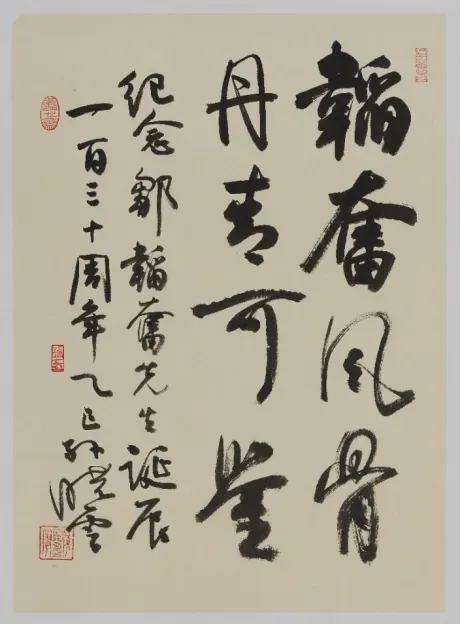 韜奮風骨
丹青可鉴
纪念鄒韜奮先生诞辰
一百三十周年乙巳孙晓雲